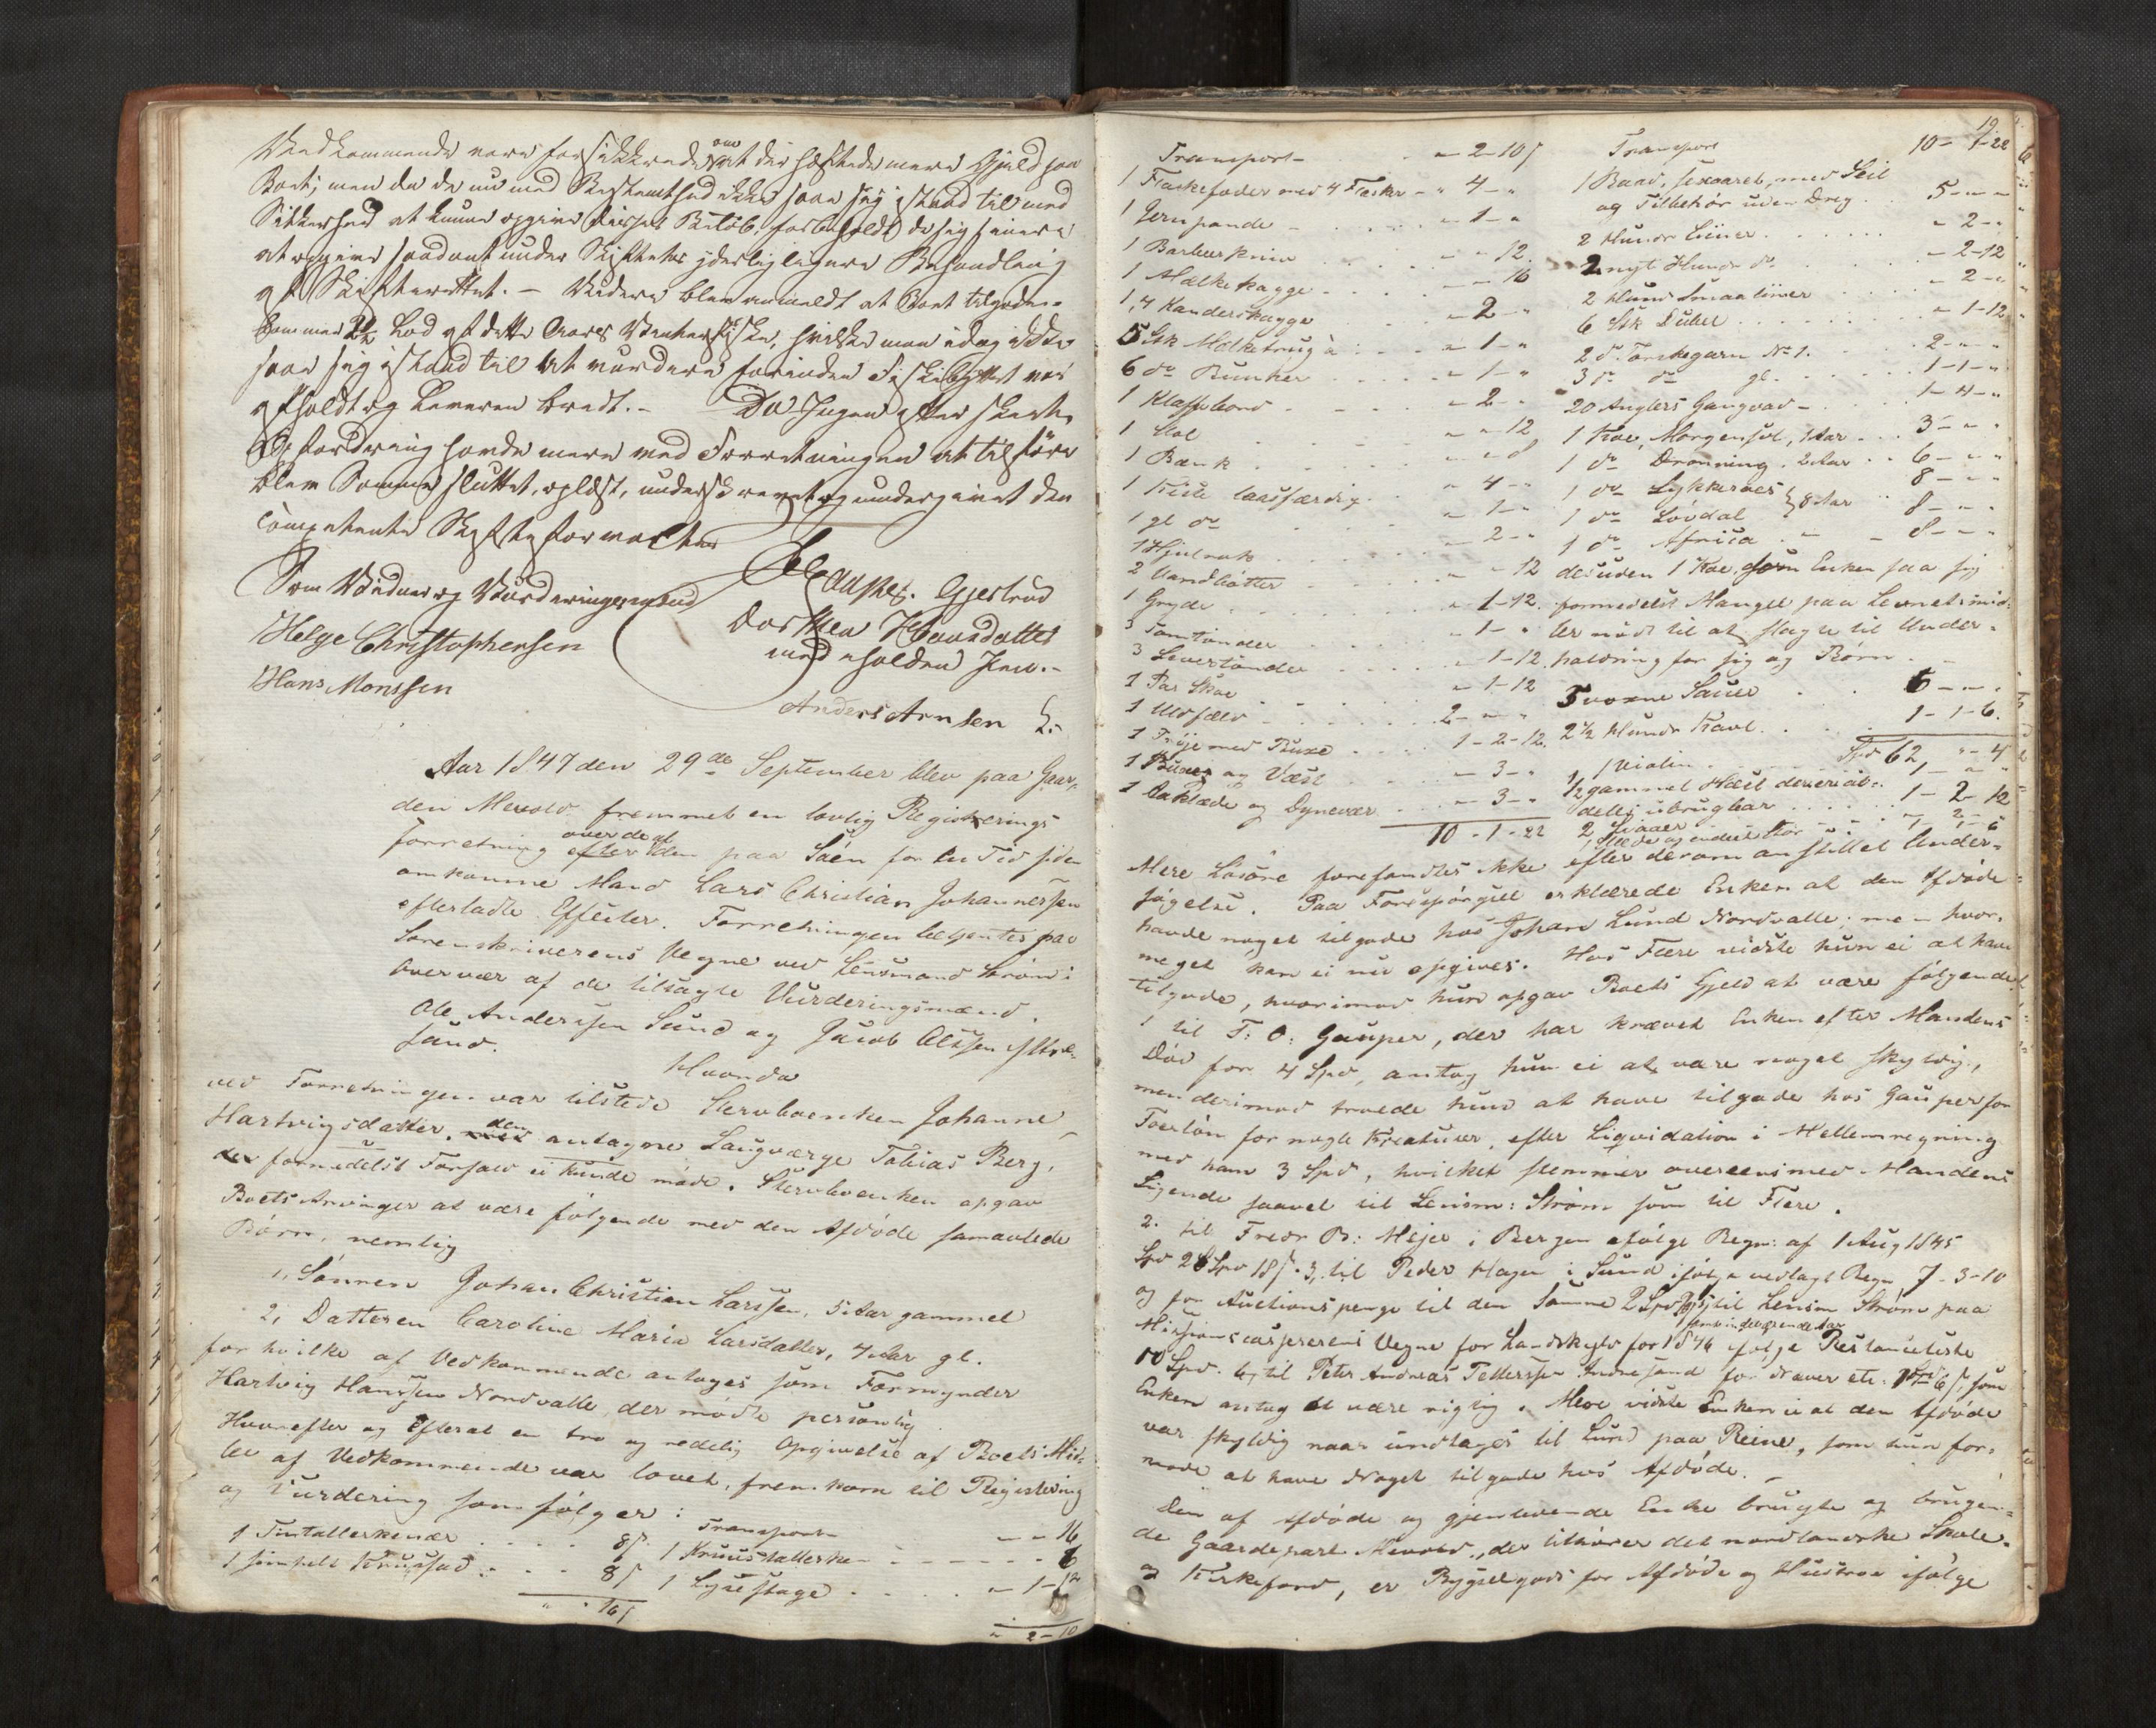 Vedkommende vare forsikkrede om at der heftede mere Gjeld paa
Boet; men da de nu med Bestemthed ikke saae sig istand til med
Sikkerhed at kunne opgive dennes Beløb, forbeholdt de sig senere
at opgive saadant under Skiftets yderligere Behandling
af Skifteretten. – Videre blev anmeldt at Boet tilgode-
kommer 2½ Lod af dette Aars Vinterfiske, hvilke man idag ikke
saae sig istand til at vurdere forinden Fiskebyttet var
afholdt og Leveren brædt. – Da Ingen efter skeet
Opfordring havde mere ved Forretningen at tilføre
blev Samme sluttet, oplæst, underskrevet og undergivet den
competente Skifteforvalter
Som Vidner og Vurderingsmænd
Helge Christophersen
Hans Monssen
Gjertrud
Dorthea Hansdatter
med paaholden Pen. –
Anders Arntsen
Aar 1847 den 29de September blev paa Gaar-
den Mevold fremmet en lovlig Registrerings
forretning efter over de af den paa Søen for en Tid siden
omkomne Mand Lars Christian Johannessen
efterladte Effecter. Forretningen betjentes paa
Sorenskriverens Vegne ved Lensmand Strøm i
Overvær af de tilsagte Vurderingsmænd.
Ole Anderssen Sund og Jacob Olssen
sund.
Hvorda
ved Forretningen var tilstede Stervboenken Johanne
Hartvigsdatter, den antagne Laugværge Tobias Berg,
der formedelst Forfald ei kunde møde. Stervboenken opgav
Boets Arvinger at være følgende med den Afdøde samavlede
Børn, nemlig
1, Sønnen Johan Christian Larssen, 5 Aar gammel
2, Datteren Caroline Maria Larsdatter, 4 Aar gl.
for hvilke af Vedkommende antoges som Formynder
Hartvig Hanssen Nordvalle der mødte personlig
Hvorefter og efterat en tro og redelig Opgivelse af Boets Mid-
ler af Vedkommende var lovet, fremkom til Registering
og Vurdering som følger:
1 Tintallerkenær . . . . 8ſ
1 simpelt Kruusfad . . . 8ſ
" " 16ſ
Transport – – " 16
1 Kruustallerken – – – – – 6
1 Lysestage . . . . " 1–12
" 2–10
19
Transport – . . " 2–10ſ
1 Flaskefoder med 4 Flasker – " 4–"
1 Jernpande – . . . . . " 1–"
1 Barbeerkniv . . . . " " 12.
1 Melkekagge . . . . " – 16
1, 4 Kanderskagge . . . – 2–"
5 Stk Melketrug à . . . " 1–"
6 do Bunker . . . . . " 1–"
1 Klapbord . . . . . " 2–"
1 Stol . . . . . " " 12
1 Bænk . . . . . " " 8
1 Kiste laasfærdig . . " 4–"
1 gl do . . . . . " 1–"
1 Hjulrok . . . . . " 2–"
2 Vandbøtter . . . . " " 12
1 Gryde . . . . . " 1–12.
3 Tomtønder . . . . . " 1–"
3 Levertønder . . . . " 1–12.
1 Par Skoe . . . . . " 1–12
1 Uldfæld – . . . . . 2–"–"
1 Trøje med Buxe . . . . 1–2–12.
1 Buxer og Væst . . . . – 3–"
1 Aaklæde og Dynevær . . . – 3–"
10–1–22
Transport 10–1–22
1 Baad, sexaaret, med Seil
og Tilbehør uden Dreg . . 5–"–"
2 Hundr Liiner . . . . . " 2–"
2 nyt Hundr do . . . . " 2–12
2 Hund Smaaliiner . . . . " 2–"
6 Stk Dubel . . . . . " 1–12
2 do Torskegarn No 1. . . . 2–"–"
3 do do gl. . . . . . 1–1–"
20 Anglers Gangvad – . . . 1–4–"
1 Koe, Morgensol, 7 Aar . . . 3–"–"
1 do Dronning. 2 Aar . . 6–"–"
1 do Lykkeroes } 8 Aar . . 8–"–"
1 do Løvdal 8–"–"
1 do Africa . . – – 8–"–"
desuden 1 Koe, som Enken saa sig
formedelst Mangel paa Levnetsmid-
ler nødt til at slagte til Under-
holdning for sig og Børn. –
5 voxne Sauer . . . 5–"–"
2½ Hundr Kavl . . . . 1–1–6.
Spd 62 "–4
1 violin . . . . . 1–"–"
½ gammel Hæst
deels ubrugbar . . . . . 1–2–12
Mere Løsøre forefandtes ikke efter derom anstillet Under-
søgelse. Paa Forespørgsel erklærede Enken at den Afdøde
havde noget tilgode hos Johan Lund Nordvalle; men hvor-
meget kan ei nu opgives. Hos Flere vidste hun ei at have
tilgode, hvorimod hun opgav Boets Gjeld at være følgende
1 til F: O: Gauper, der har krævet Enken efter Mandens
Død for 4 Spd, antog hun ei at være noget skyldig,
men derimod troede hun at have tilgode hos Gauper for
Foerløn for nogle Kreaturer, efter Liqvidation i Mellemregning
med ham 3 Spd, hvilket stemmer overeens med Mandens
Sigende saavel til Lensm: Strøm som til Flere.
2. til Fredr B: Mejer i Bergen ifølge Regn: af 1 Aug 1845
Spd 28 Spd 18ſ. 3, til Peder Hagen i Sund ifølge vedlagt Regn 7–3–10
og for Auctionspenge til den Samme 2 Spd til Lensm Strøm paa
Missionscassererens Vegne for Landskyld for 1846 samt indeværende Aar ifølge Restanceliste
10 Spd. 4, til Peter Andreas Tellerssen Andresund for Næver etc. 1 Spd 6ſ, som
Enken antog at være rigtig. Mere vidste Enken ei at den Afdøde
var skyldig naar undtages til Lund paa Reine, som hun for-
mode at have Noget tilgode hos Afdøde. –
Den af Afdøde og gjenlevende Enke brugte og brugen-
de Gaardepart Mevold, der tilhører det nordlandske Skole-
og Kirkefond, er Bygselgods for Afdøde og Hustroe ifølge